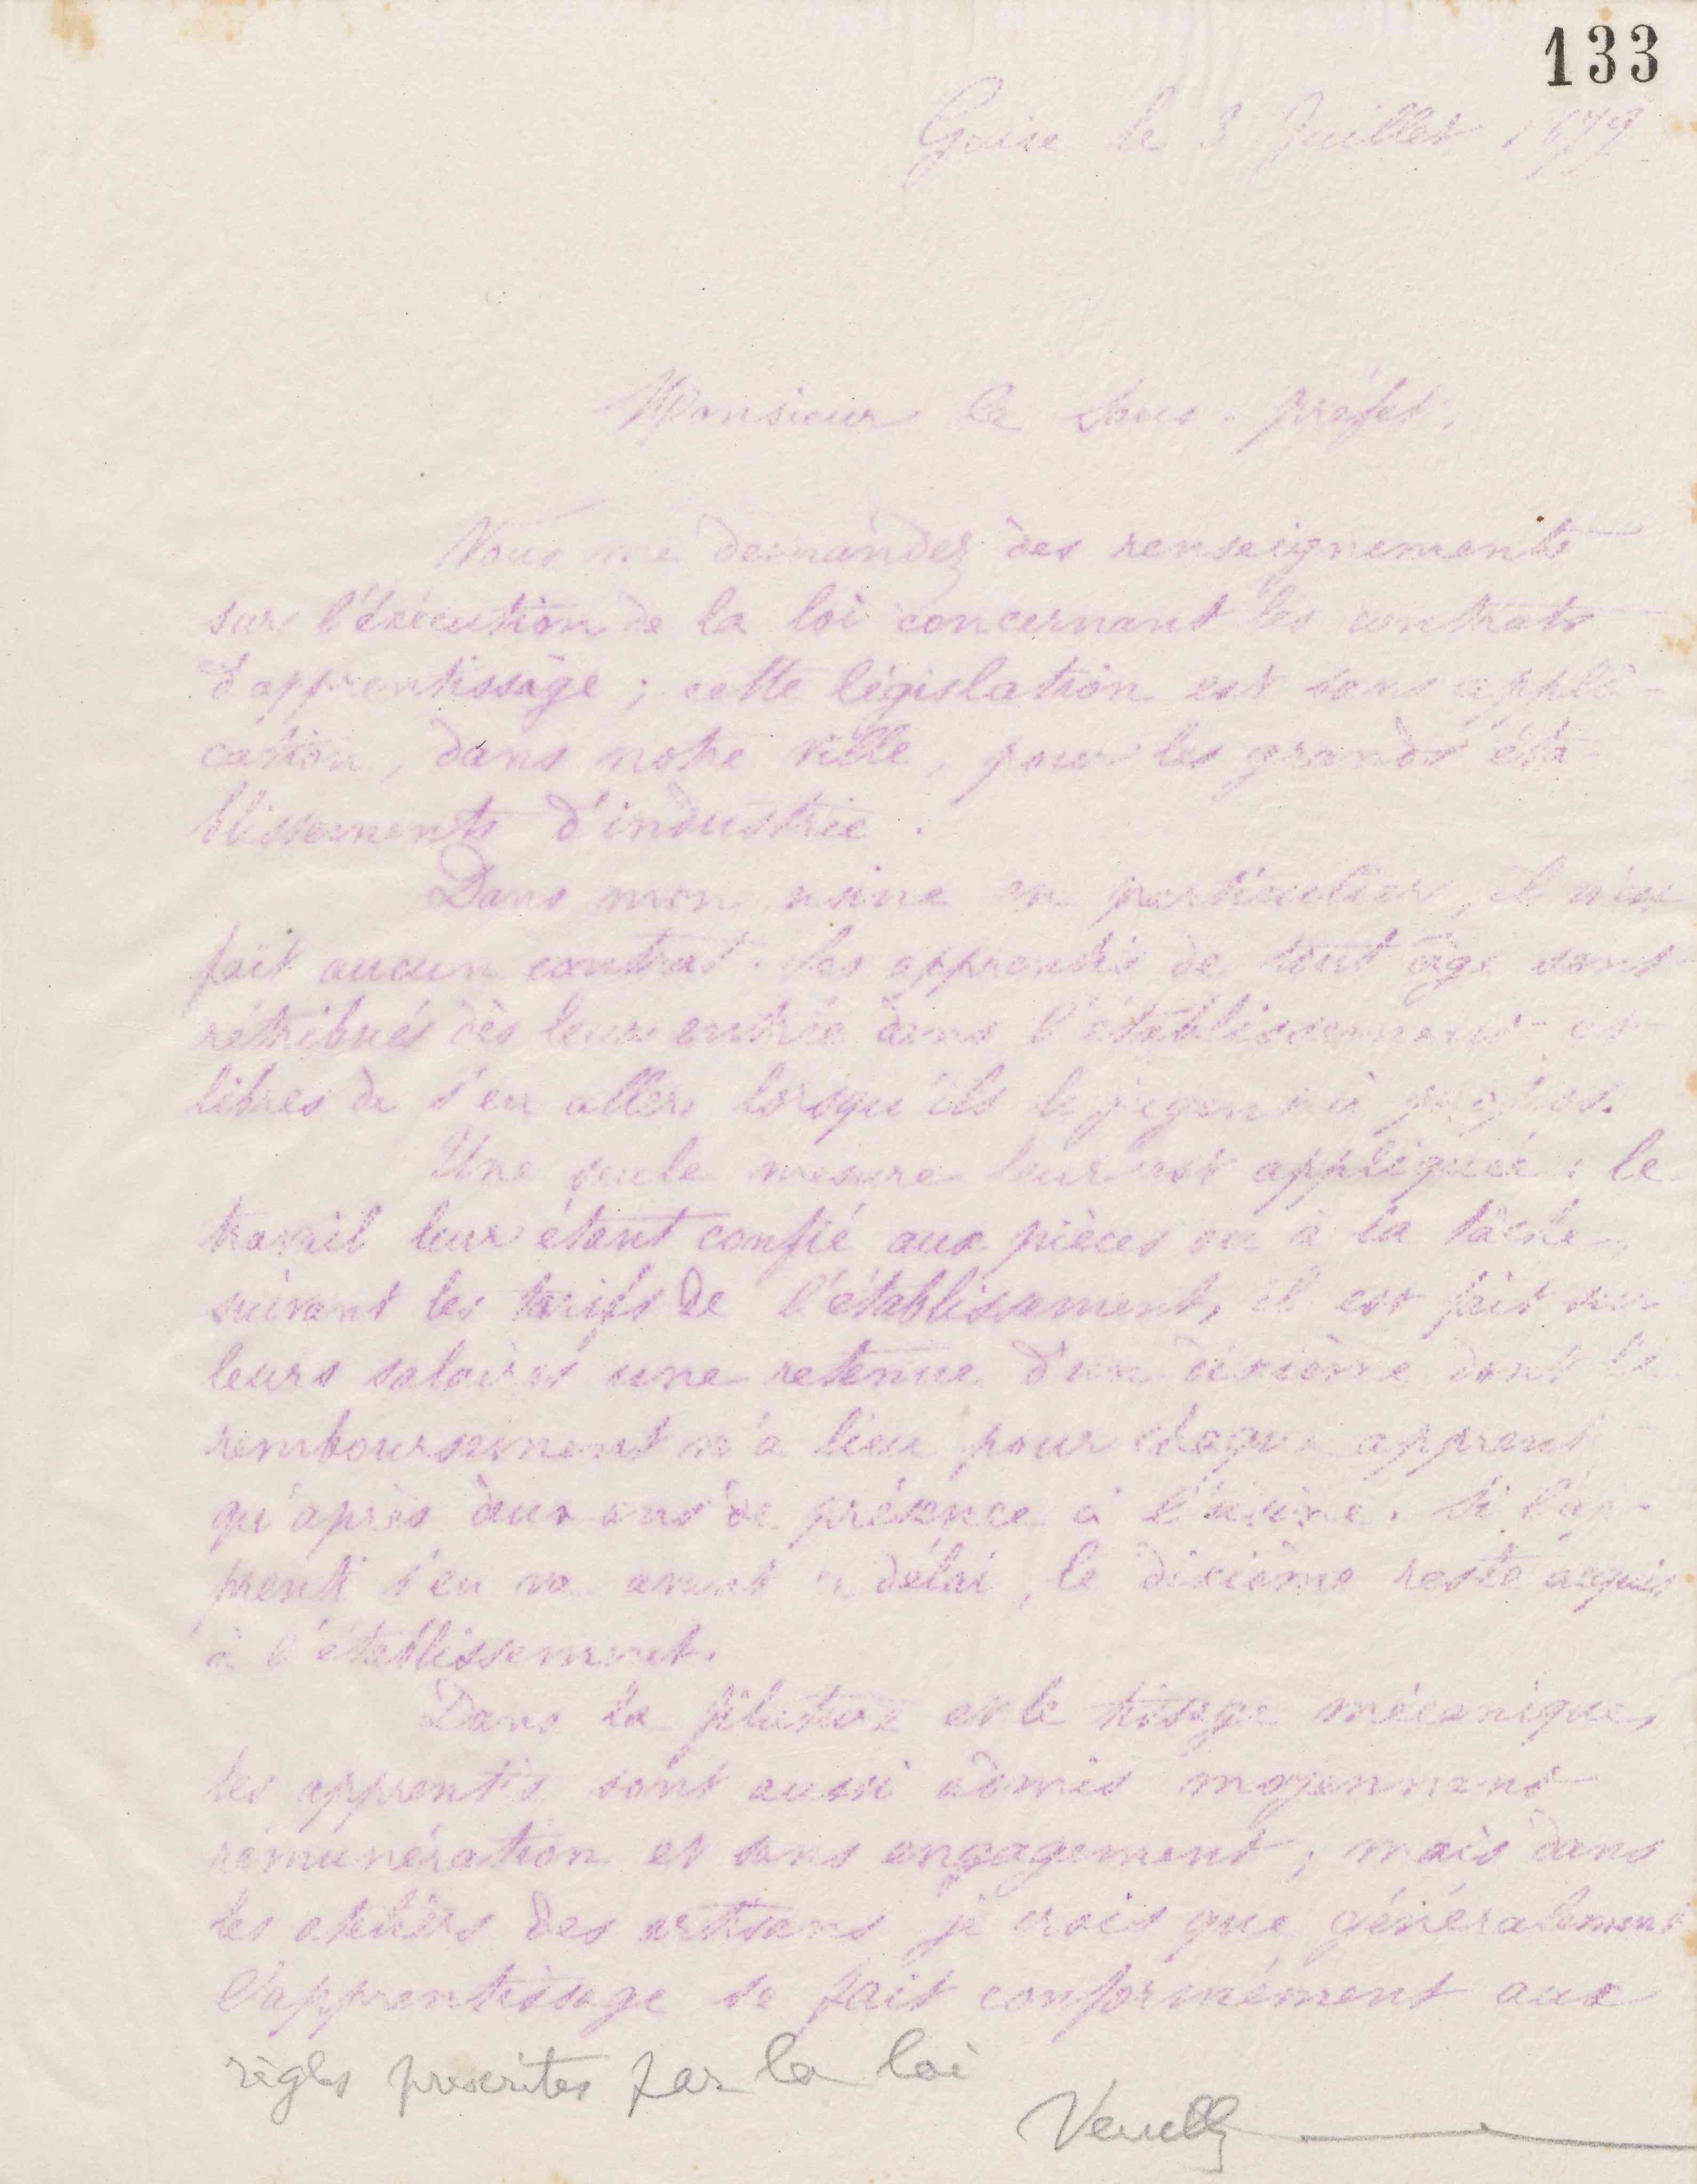 133
Guise le 3 Juillet 1879
Monsieur le Sous-préfet,
Vous me demandez des renseignements
sur l'exécution de la loi concernant les contrats
d'apprentissage ; cette législation est sans appli-
cation, dans notre ville, pour les grands éta-
blissements d'industrie.
Dans mon usine en particulier, il n'est
fait aucun contrat. Les apprentis de tout âge sont
rétribués dès leur entrée dans l'établissement et
libres de s'en aller lorsqu'ils le jugent à propos.
Une seule mesure leur est appliquée : le
travail leur étant confié aux pièces ou à la tâche,
suivant les tarifs de l'établissement, il est fait sur
leurs salaires une retenue d'un dixième dont le
remboursement n'a lieu pour chaque apprenti
qu'après deux ans de présence à l'usine. Si l'ap-
prenti s'en va avant ce délai, le dixième reste acquis
à l'établissement.
Dans la filature et le tissage mécanique,
les apprentis sont aussi admis moyennant
rémunération et sans engagement ; mais dans
les ateliers des artisans je crois que généralement
l'apprentissage se fait conformément aux
règles prescrites par la loi
Veuillez